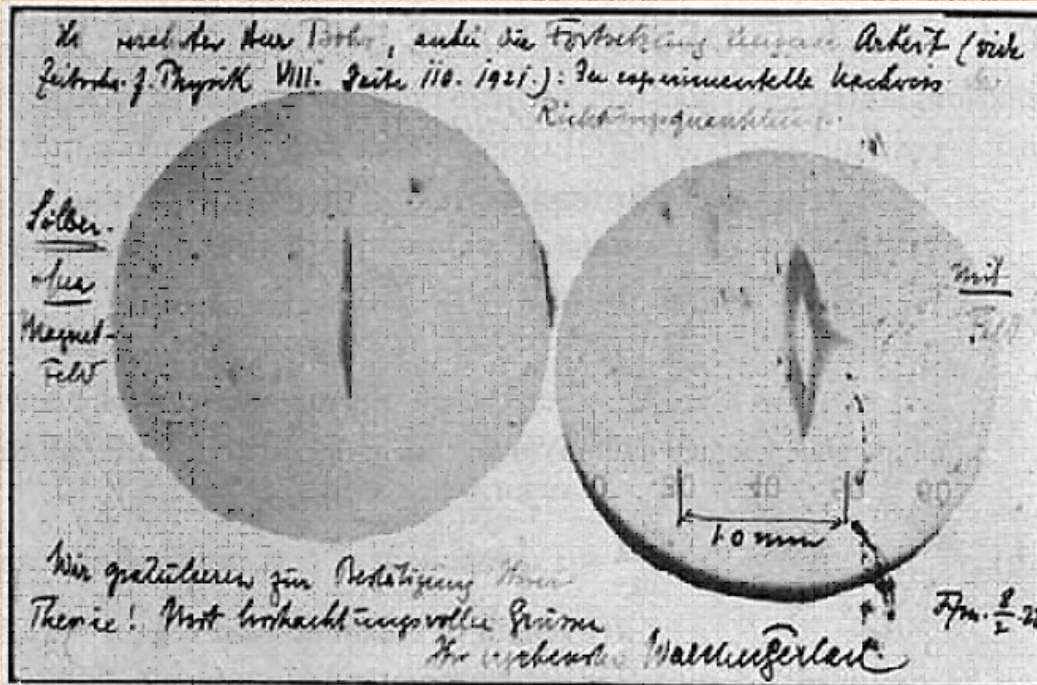 verehrter Herr Bohr, anbei die Fortsetzung unserer Arbeit (vide
Zeitschr. f. Physik VIII. Seite 110. 1921.): Der experimentelle Nachweis
Richtungsquantelung.
Silber
Magnet-
Feld
Mit
Feld
0 30 40 50 60
1.0 mm
Wir gratulieren zur Bestätigung Ihrer
Theorie! Mit hochachtungsvollen Grüssen
Ihr ergebenster Walther Gerlach